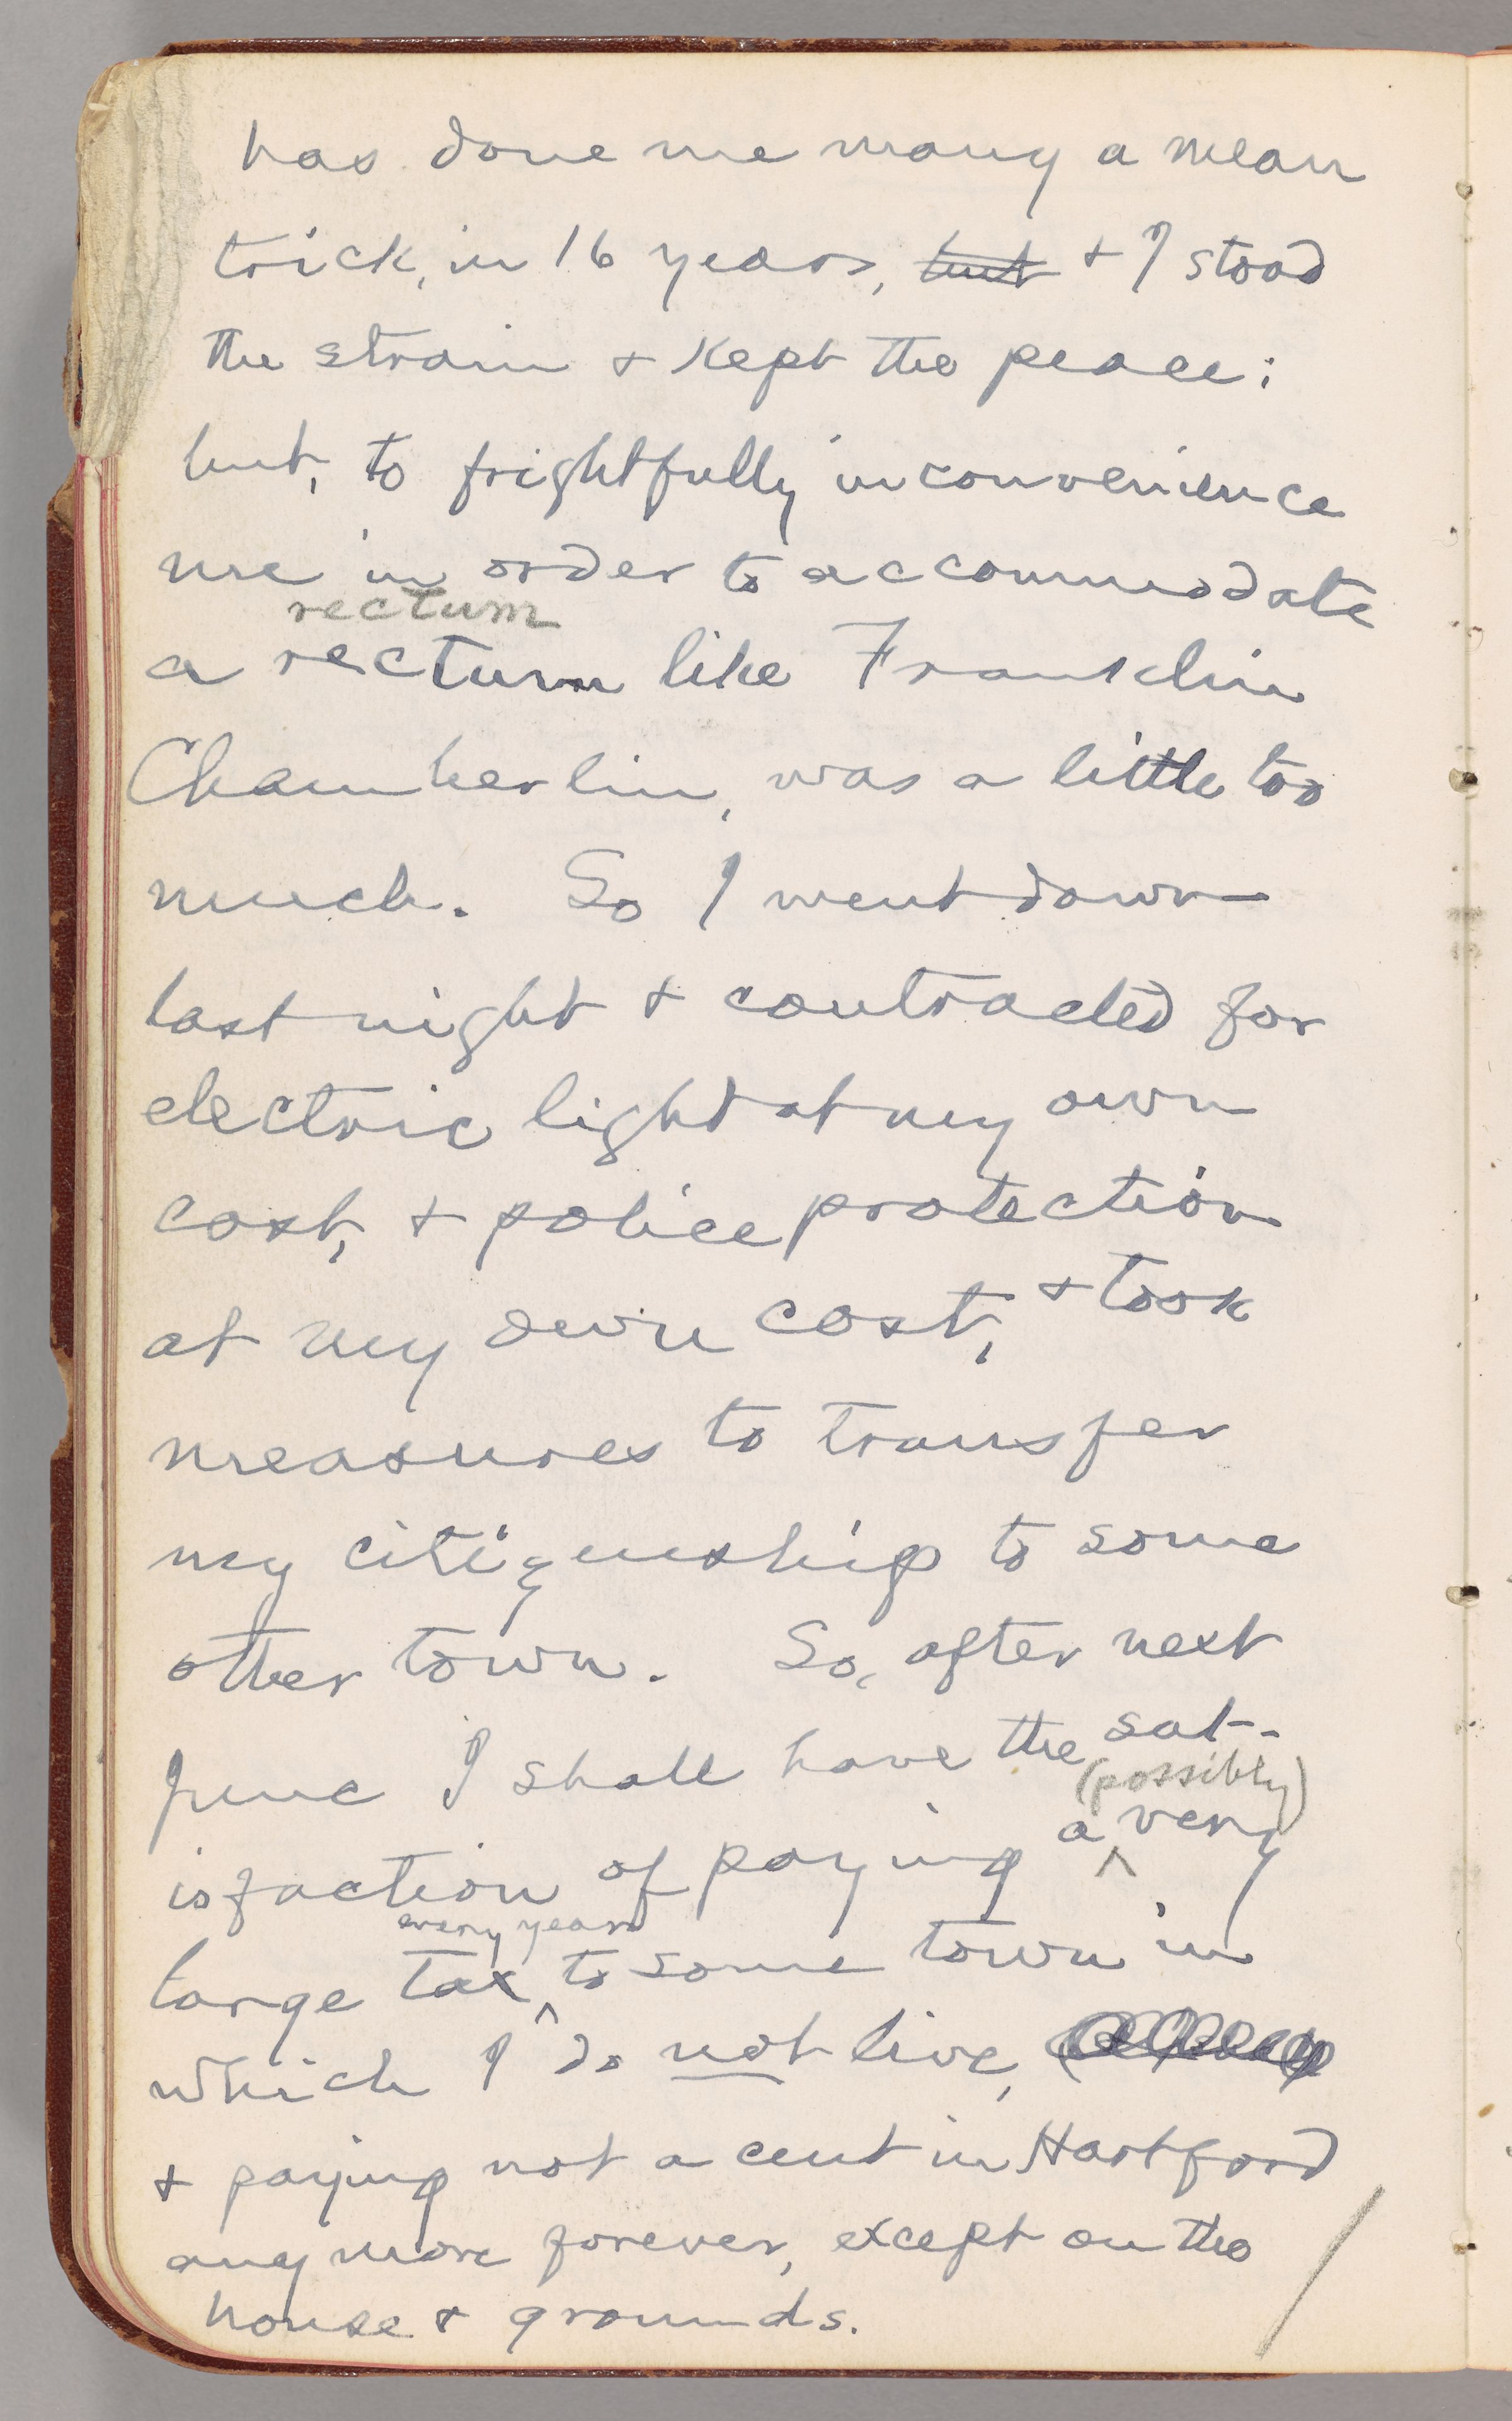 has done me many a mean
trick, in 16 years, but & I stood
the strain & kept the peace;
but, to frightfully inconvenience
me in order to accommodate
rectum
a rectum like Franklin
Chamberlin, was a little too
much. So I went down
last night & contracted for
electric light at my own
cost, & police protection
at my own cost, & took
measures to transfer
my citizenship to some
other town. So, after next
June I shall have the sat-
(possibly)
isfaction of paying a ^ very
every year
large tax ^ to some town in
which I do not live,
& paying not a cent in Hartford
any more forever, except on the
house & grounds.